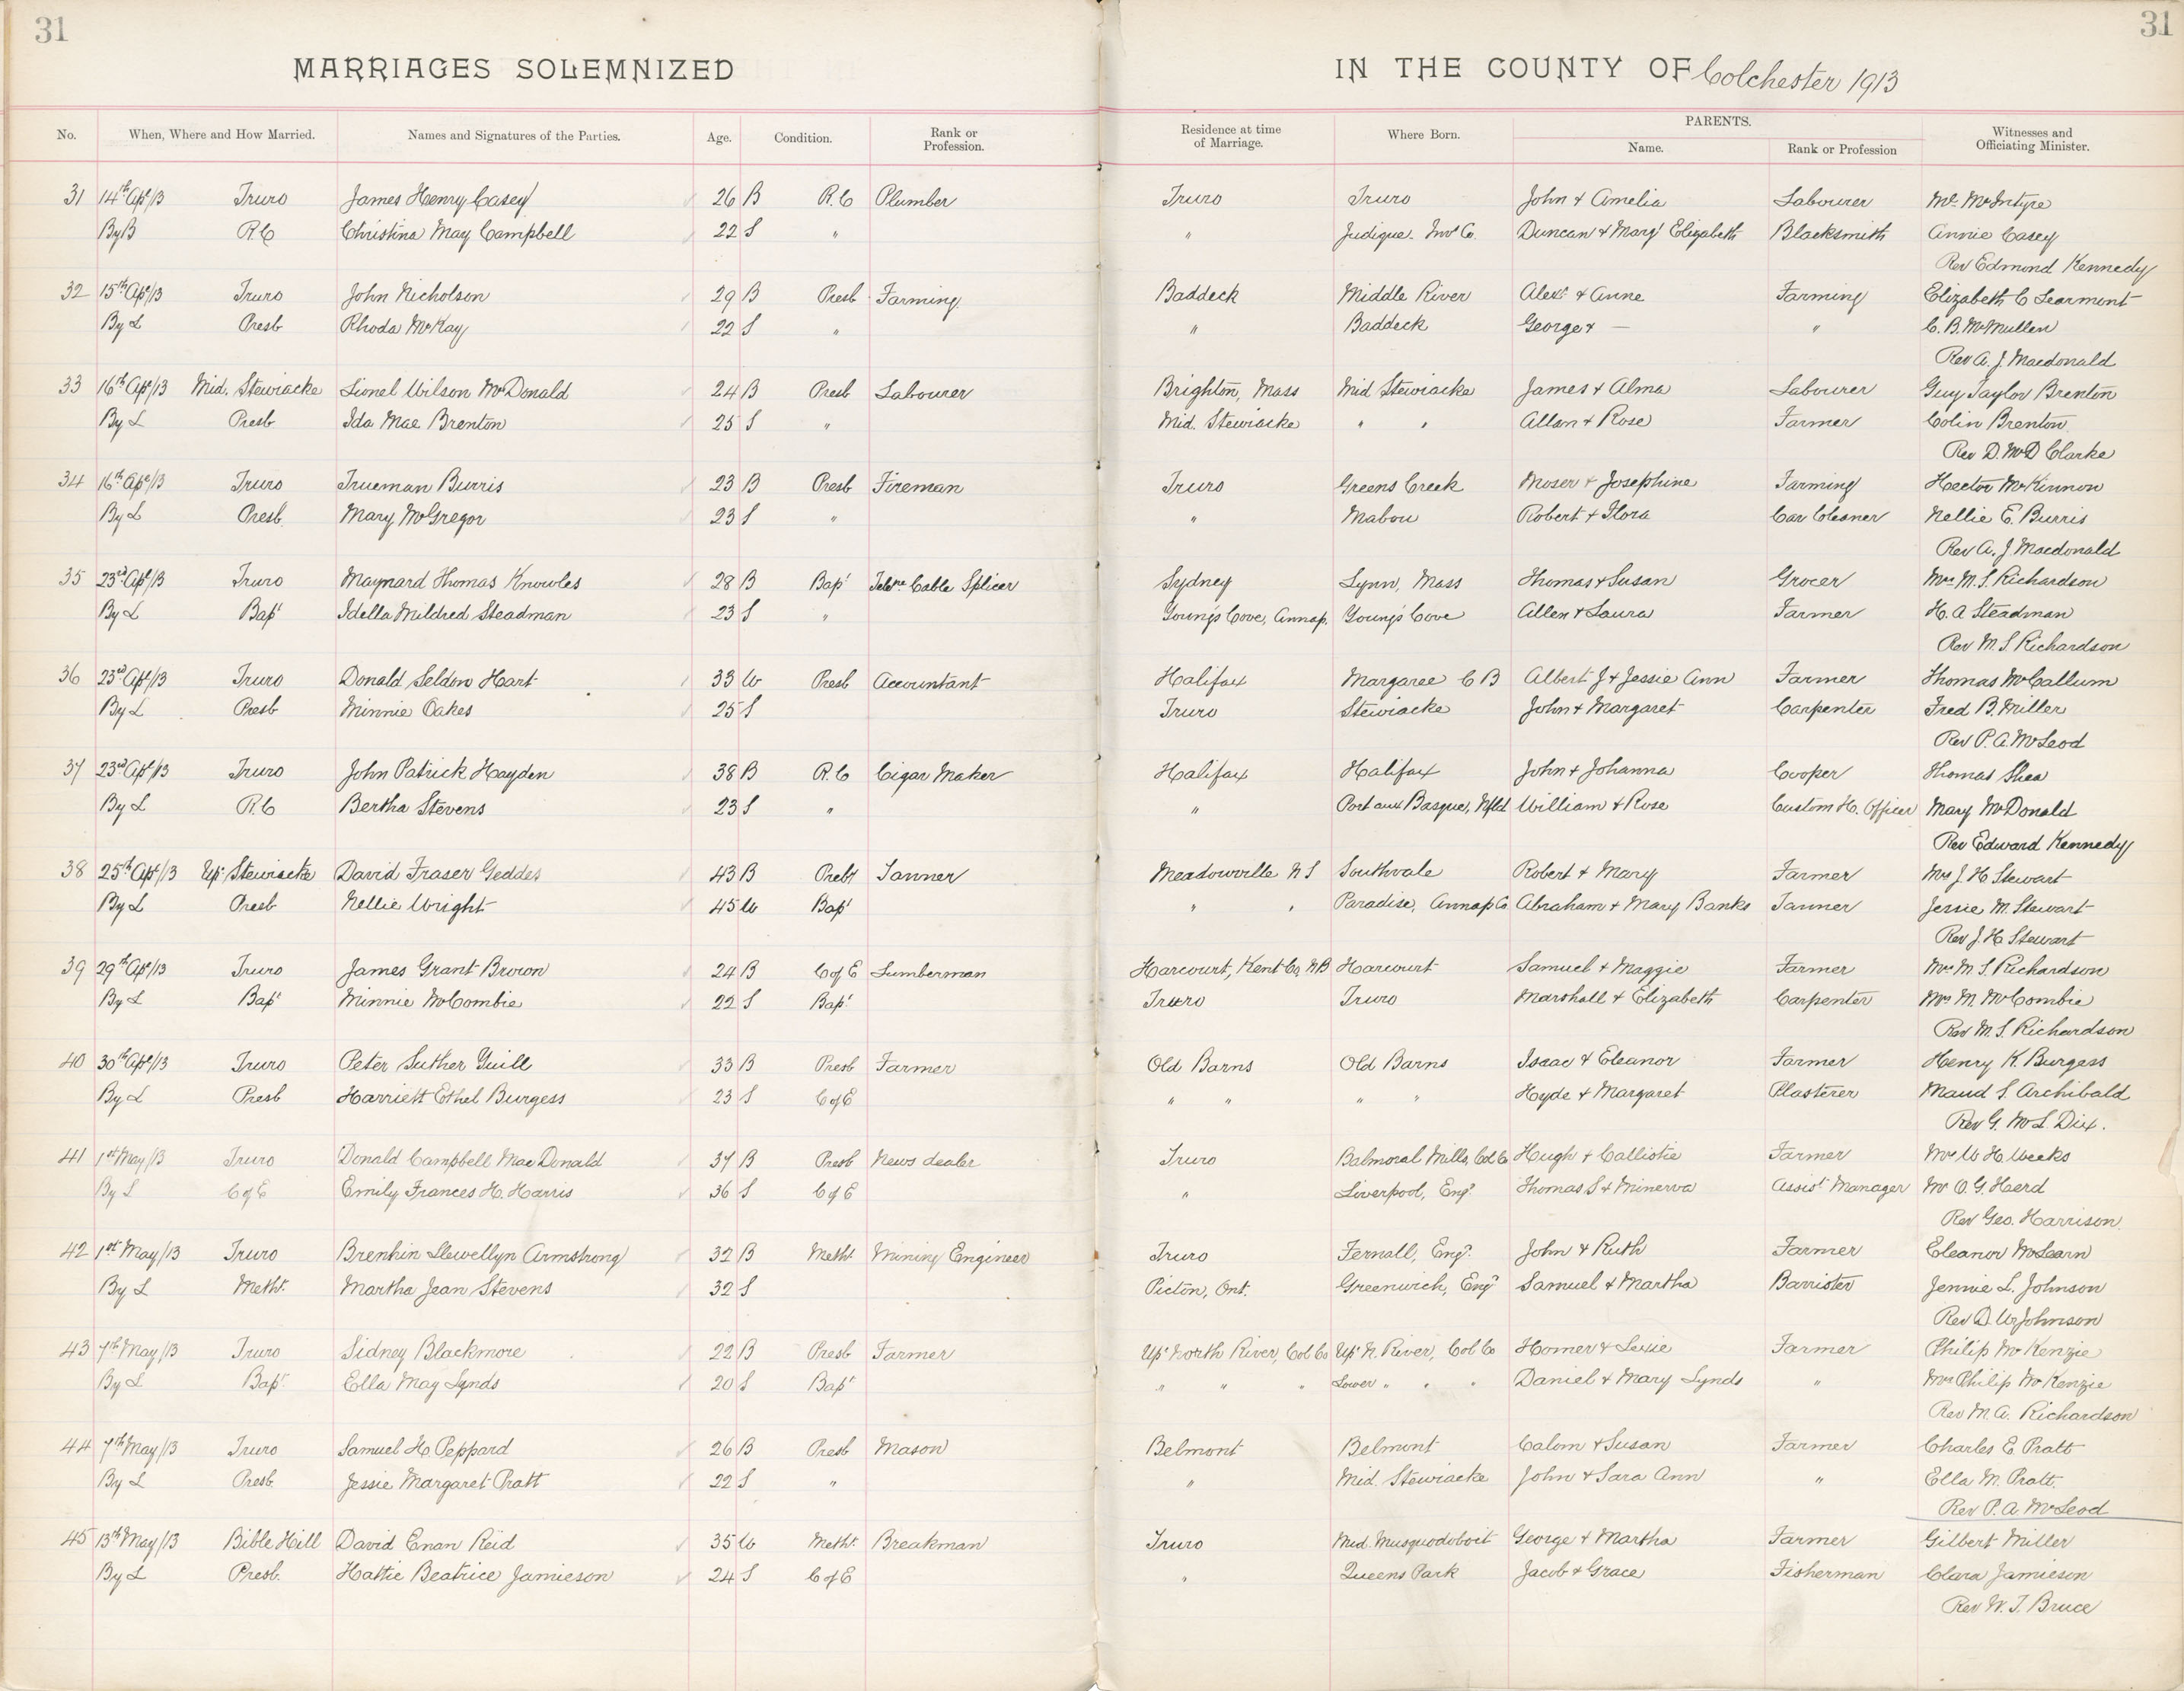 31 31
MARRIAGES SOLEMNIZED IN THE COUNTY OF Colchester 1913
No. When, Where and How Married. Names and Signatures of the Parties. Age. Condition. Rank or Profession. Residence at time of Marriage. Where Born. PARENTS. Name. Rank or Profession Witnesses and Officiating Minister.
31 14th Apl/13 Truro James Henry Casey 26 B R.C Plumber Truro Truro John & Amelia Labourer Mr McIntyre
By B R.C Christina May Campbell 22 S " " Judique Invs Co. Duncan & Margt Elizabeth Blacksmith Annie Casey
Rev Edmond Kennedy
32 15th Apl/13 Truro John Nicholson 29 B Presb Farming Baddeck Middle River Alexr & Anne Farming Elizabeth C Learmont
By L Presb Rhoda McKay 22 S " " Baddeck George & — " C. B. McMullen
Rev A. J. Macdonald
33 16th Apl/13 Mid. Stewiacke Lionel Wilson McDonald 24 B Presb Labourer Brighton, Mass Mid Stewiacke James & Alma Labourer Guy Taylor Brenton
By L Presb Ida Mae Brenton 25 S " Mid. Stewiacke " " Allan & Rose Farmer Colin Brenton
Rev D. McD Clarke
34 16th Apl/13 Truro Trueman Burris 23 B Presb Fireman Truro Greens Creek Moser & Josephine Farming Hector McKinnon
By L Presb. Mary McGregor 23 S " " Mabou Robert & Flora Car Cleaner Nellie E. Burris
Rev A. J Macdonald
35 23rd Apl/13 Truro Maynard Thomas Knowles 28 B Bapt Cable Splicer Sydney Lynn, Mass Thomas & Susan Grocer Mrs M. S. Richardson
By L Bapt Idella Mildred Steadman 23 S " Young's Cove, Annap. Young's Cove Allen & Laura Farmer H. A Steadman
Rev M. S. Richardson
36 23rd Apl/13 Truro Donald Seldon Hart 33 W Presb Accountant Halifax Margaree C B Albert J & Jessie Ann Farmer Thomas McCallum
By L Presb Minnie Oakes 25 S Truro Stewiacke John & Margaret Carpenter Fred B. Miller
Rev P. A. McLeod
37 23rd Apl/13 Truro John Patrick Hayden 38 B R.C Cigar Maker Halifax Halifax John & Johanna Cooper Thomas Shea
By L R.C Bertha Stevens 23 S " " Port aux Basque, Nfld William & Rose Custom H. Officer Mary McDonald
Rev Edward Kennedy
38 25th Apl/13 Upr Stewiacke David Fraser Geddes 43 B Prebt Tanner Meadowville N S Southvale Robert & Mary Farmer Mrs J. H Stewart
By L Presb Nellie Wright 45 W Bapt " " Paradise, Annap Co Abraham & Mary Banks Tanner Jessie M. Stewart
Rev J. H Stewart
39 29th Apl/13 Truro James Grant Brown 24 B C of E Lumberman Harcourt, Kent Co, N B Harcourt Samuel & Maggie Farmer Mrs M S. Richardson
By L Bapt Minnie McCombie 22 S Bapt Truro Truro Marshall & Elizabeth Carpenter Mrs M. McCombie
Rev M. S. Richardson
40 30th Apl/13 Truro Peter Suther Yuill 33 B Presb Farmer Old Barns Old Barns Isaac & Eleanor Farmer Henry K. Burgess
By L Presb Harriett Ethel Burgess 23 S C of E " " " " Hyde & Margaret Plasterer Maud S. Archibald
Rev G. McL. Dix.
41 1st May/13 Truro Donald Campbell MacDonald 37 B Presb News dealer Truro Balmoral Mills, Col Co Hugh & Callistie Farmer Mrs W H. Weeks
By L C of E Emily Frances H. Harris 36 S C of E " Liverpool, Engd Thomas S & Minerva Assist Manager Mr O. G. Heerd
Rev Geo. Harrison
42 1st May/13 Truro Brenhin Llewellyn Armstrong 32 B Metht Mining Engineer Truro Fernall, Engd. John & Ruth Farmer Eleanor McLearn
By L Metht. Martha Jean Stevens 32 S Picton, Ont. Greenwich, Engd Samuel & Martha Barrister Jennie L. Johnson
Rev D. W. Johnson
43 7th May/13 Truro Sidney Blackmore 22 B Presb Farmer Upr North River, Col Co Upr N. River, Col Co Homer & Lexie Farmer Philip McKenzie
By L Bapt. Ella May Lynds 20 S Bapt " " " Lower " " " Daniel & Mary Lynds " Mrs Philip McKenzie
Rev M. A. Richardson
44 7th May/13 Truro Samuel H. Peppard 26 B Presb Mason Belmont Belmont Calom & Susan Farmer Charles E Pratt
By L Presb. Jessie Margaret Pratt 22 S " " Mid. Stewiacke John & Sara Ann " Ella M. Pratt.
Rev P. A. McLeod
45 13th May/13 Bible Hill David Enan Reid 35 W Metht. Breakman Truro Mid. Musquodoboit George & Martha Farmer Gilbert Miller
By L Presb. Hattie Beatrice Jamieson 24 S C of E " Queens Park Jacob & Grace Fisherman Clara Jamieson
Rev W. T. Bruce